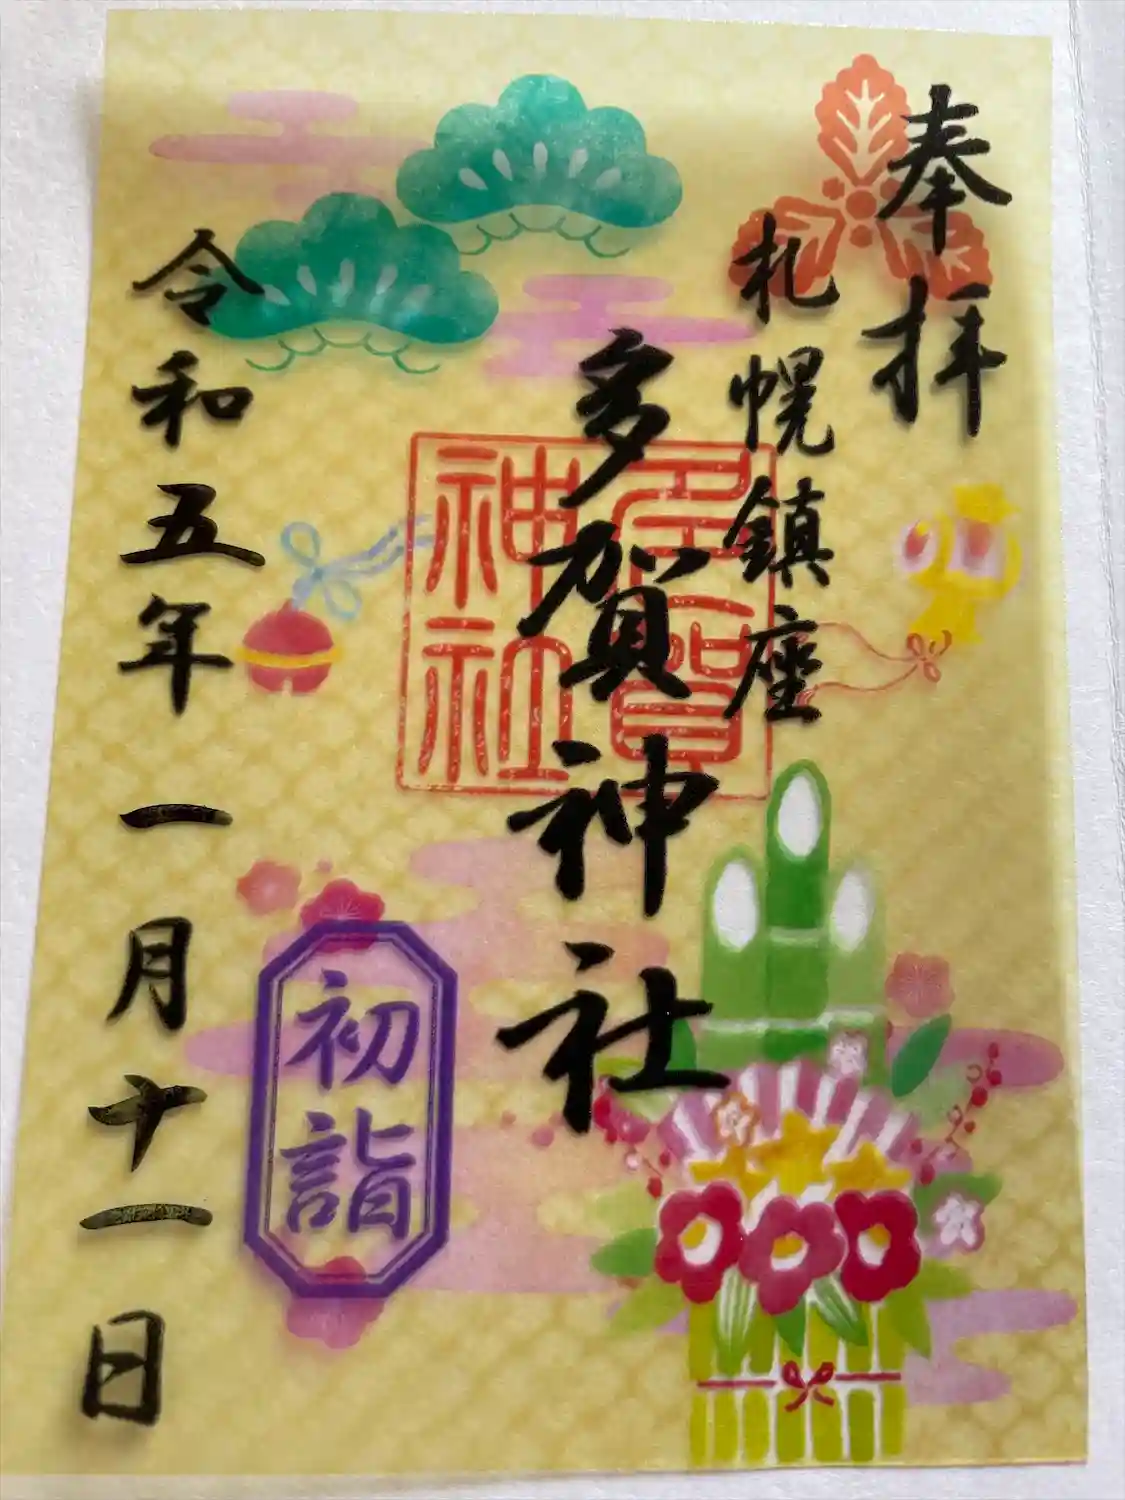 奉拝
札幌鎮座
多賀神社
多賀神社
初詣
令和五年一月十一日